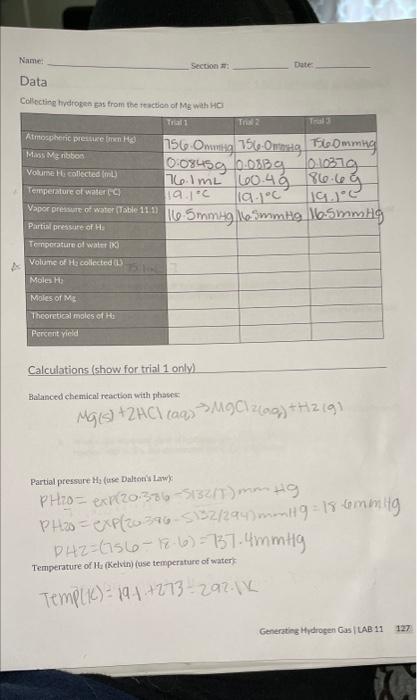 Name:
Section #: Date:
Data
Collecting hydrogen gas from the reaction of Mg with HCl
Trial 1 Trial 2 Trial 3
Atmospheric pressure (mm Hg) 756.0mmHg 756.0mmHg 756.0mmHg
Mass Mg ribbon 0.0845g 0.0813g 0.1037g
Volume H₂ collected (mL) 76.1mL 60.4g 86.6g
Temperature of water (°C) 19.1°C 19.1°C 19.1°C
Vapor pressure of water (Table 11.1) 16.5mmHg 16.5mmHg 16.5mmHg
Partial pressure of H₂
Temperature of water (K)
Volume of H₂ collected (L)
Moles H₂
Moles of Mg
Theoretical moles of H₂
Percent yield
Calculations (show for trial 1 only)
Balanced chemical reaction with phases:
Mg(s)+2HCl(aq)→MgCl2(aq)+H2(g)
Partial pressure H₂ (use Dalton's Law):
PH20= exp(20.386-5132/T)mmHg
PH20=exp(20.396-5132/294)mmHg=18.6mmHg
PH2=(756-18.6)=737.4mmHg
Temperature of H₂ (Kelvin) (use temperature of water):
Temp(K)=19.1+273=292.1K
Generating Hydrogen Gas | LAB 11 127